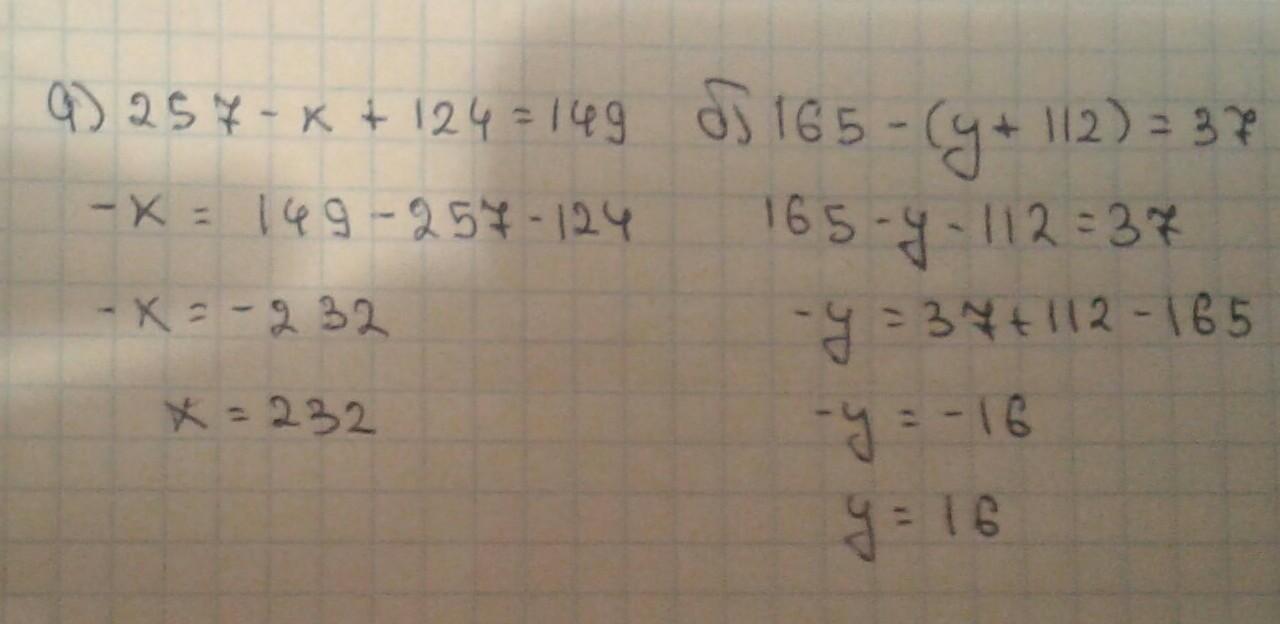 а) 257 - x + 124 = 149
-x = 149 - 257 - 124
-x = -232
x = 232
б) 165 - (y + 112) = 37
165 - y - 112 = 37
-y = 37 + 112 - 165
-y = -16
y = 16